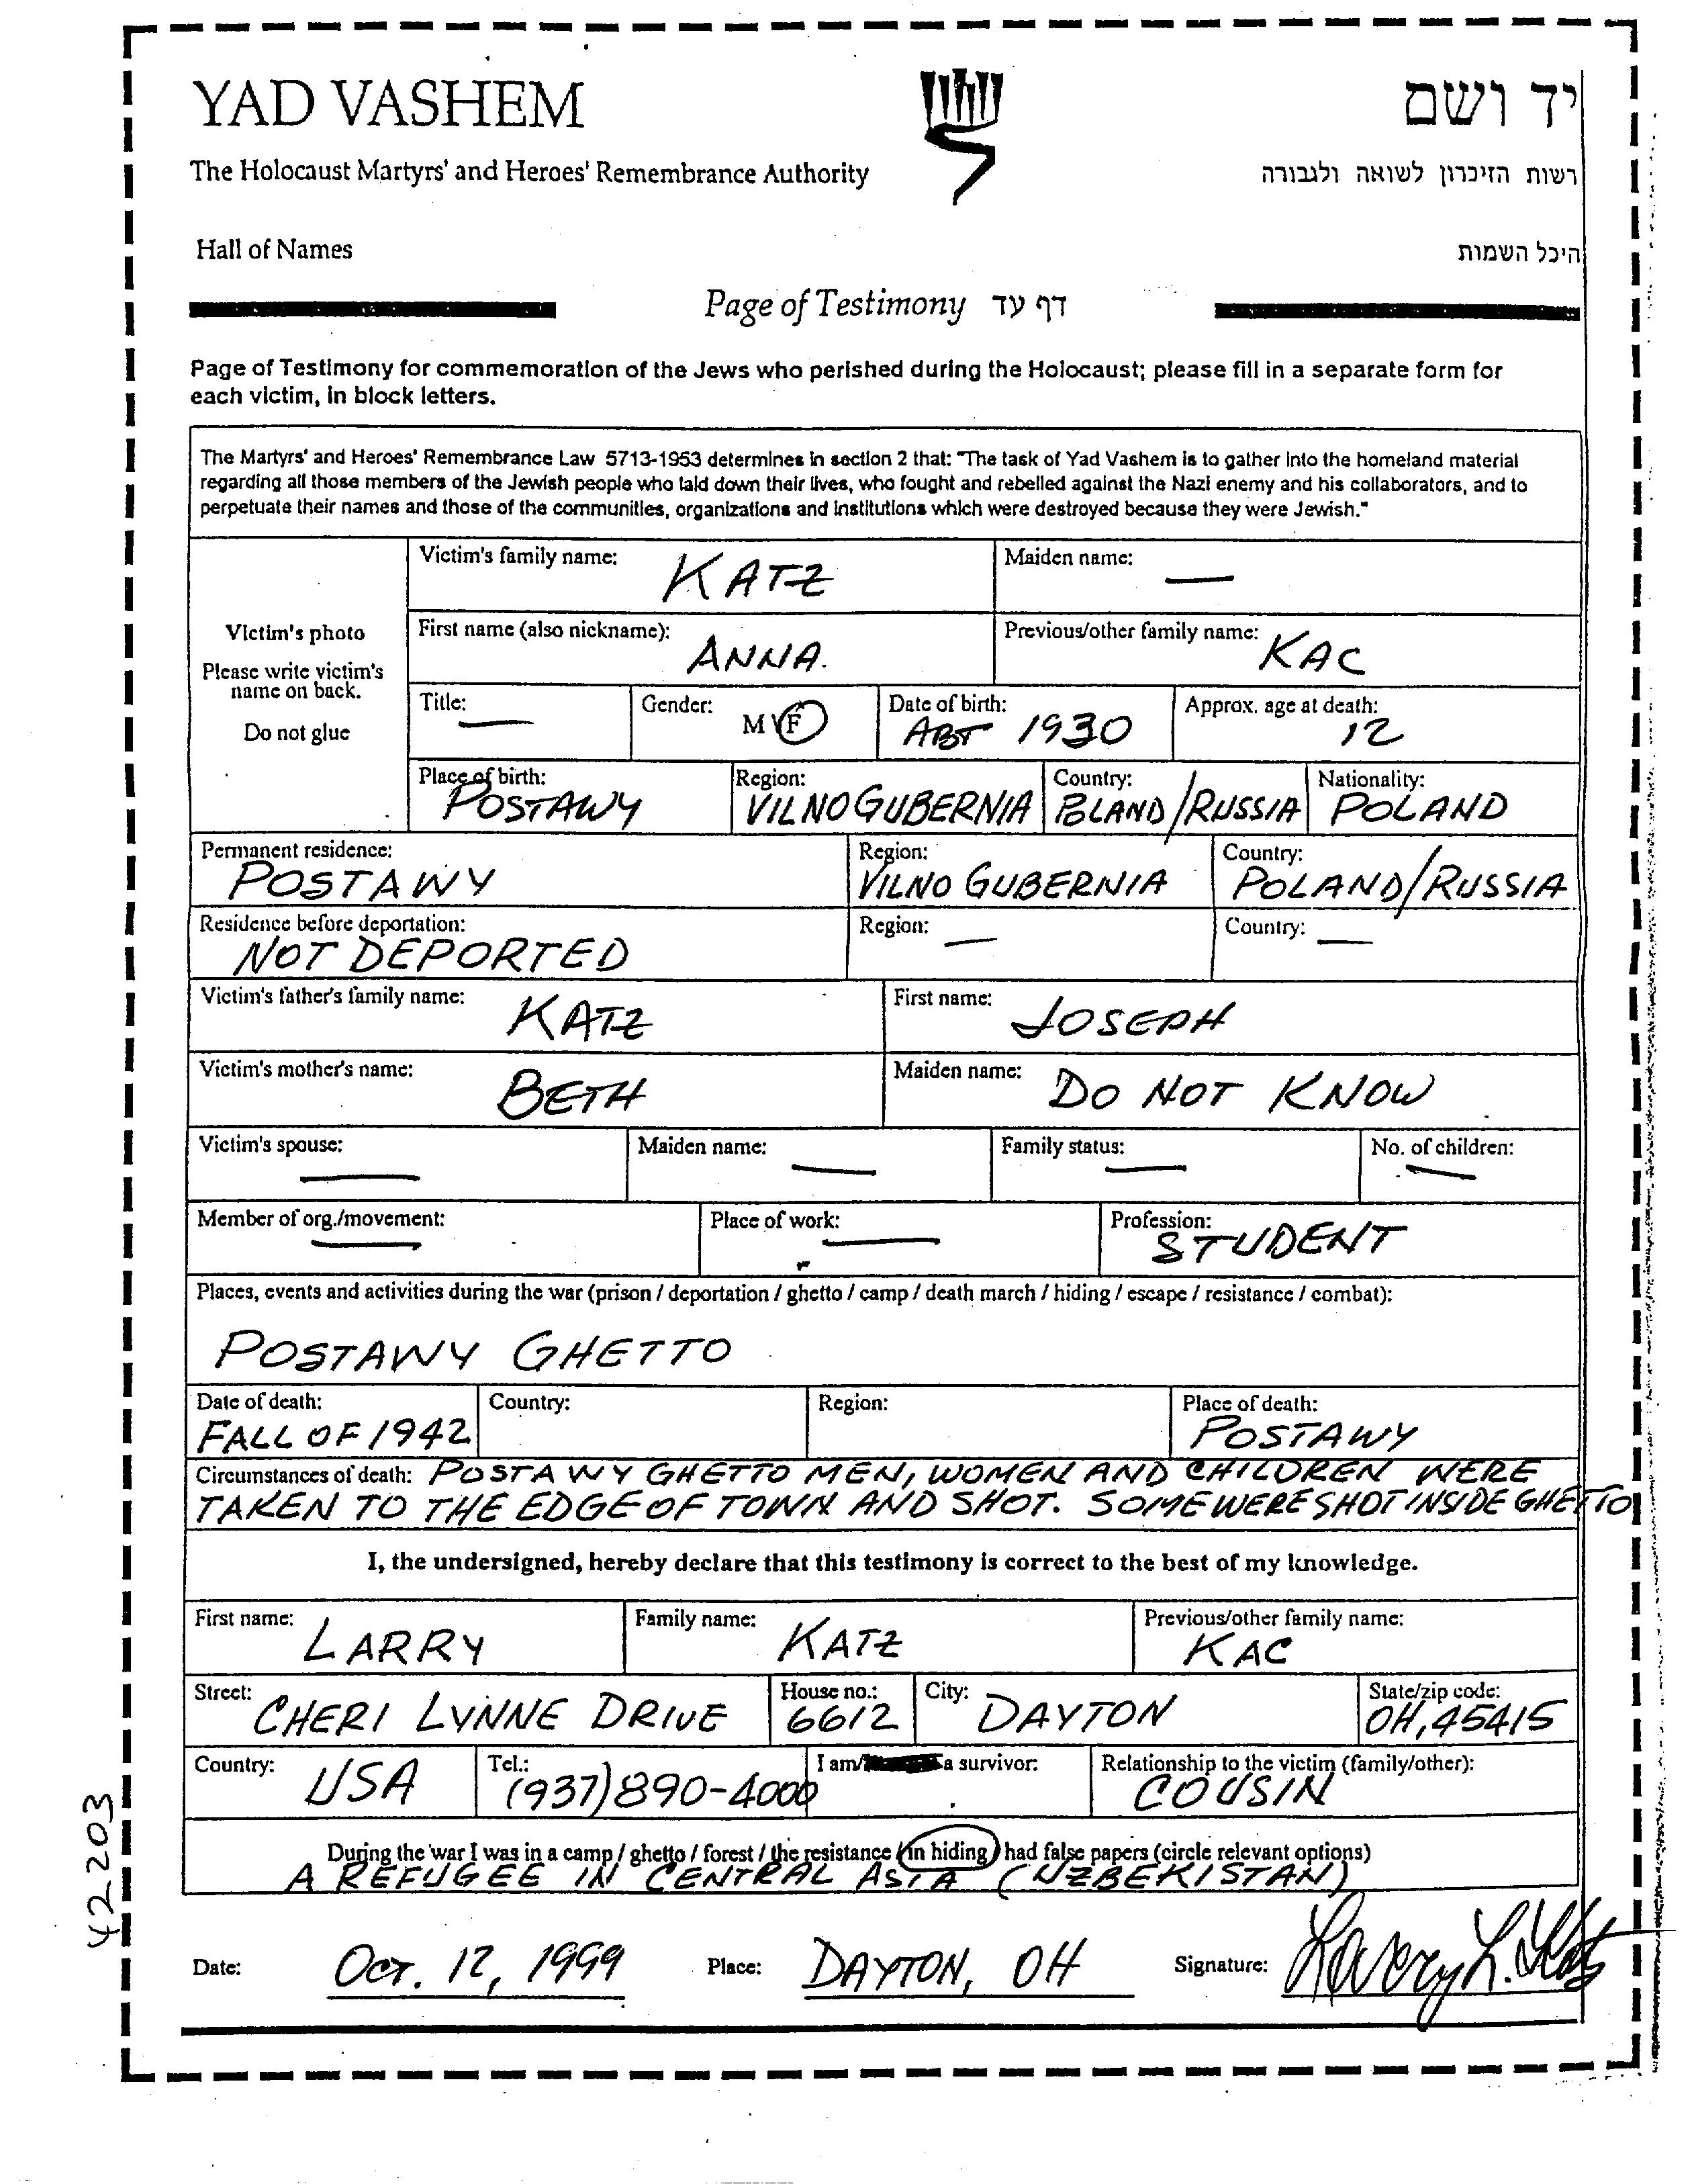 YAD VASHEM
יד ושם
The Holocaust Martyrs' and Heroes' Remembrance Authority
רשות הזיכרון לשואה ולגבורה
Hall of Names
היכל השמות
Page of Testimony דף עד
Page of Testimony for commemoration of the Jews who perished during the Holocaust; please fill in a separate form for
each victim, in block letters.
The Martyrs' and Heroes' Remembrance Law 5713-1953 determines in section 2 that: "The task of Yad Vashem is to gather into the homeland material
regarding all those members of the Jewish people who laid down their lives, who fought and rebelled against the Nazi enemy and his collaborators, and to
perpetuate their names and those of the communities, organizations and institutions which were destroyed because they were Jewish."
Victim's photo
Please write victim's
name on back.
Do not glue
Victim's family name: KATZ Maiden name: —
First name (also nickname): ANNA. Previous/other family name: KAC
Title: — Gender: M \ F Date of birth: ABT 1930 Approx. age at death: 12
Place of birth: POSTAWY Region: VILNO GUBERNIA Country: POLAND/RUSSIA Nationality: POLAND
Permanent residence: POSTAWY Region: VILNO GUBERNIA Country: POLAND/RUSSIA
Residence before deportation: NOT DEPORTED Region: — Country: —
Victim's father's family name: KATZ First name: JOSEPH
Victim's mother's name: BETH Maiden name: DO NOT KNOW
Victim's spouse: — Maiden name: — Family status: — No. of children: —
Member of org./movement: — Place of work: — Profession: STUDENT
Places, events and activities during the war (prison / deportation / ghetto / camp / death march / hiding / escape / resistance / combat):
POSTAWY GHETTO
Date of death: FALL OF 1942 Country: Region: Place of death: POSTAWY
Circumstances of death: POSTAWY GHETTO MEN, WOMEN AND CHILDREN WERE
TAKEN TO THE EDGE OF TOWN AND SHOT. SOME WERE SHOT INSIDE GHETTO
I, the undersigned, hereby declare that this testimony is correct to the best of my knowledge.
First name: LARRY Family name: KATZ Previous/other family name: KAC
Street: CHERI LYNNE DRIVE House no.: 6612 City: DAYTON State/zip code: OH, 45415
Country: USA Tel.: (937) 890-4000 I am/ a survivor: Relationship to the victim (family/other): COUSIN
During the war I was in a camp / ghetto / forest / the resistance / in hiding / had false papers (circle relevant options)
A REFUGEE IN CENTRAL ASIA (UZBEKISTAN)
Date: OCT. 12, 1999 Place: DAYTON, OH Signature: Larry L. Katz
42203